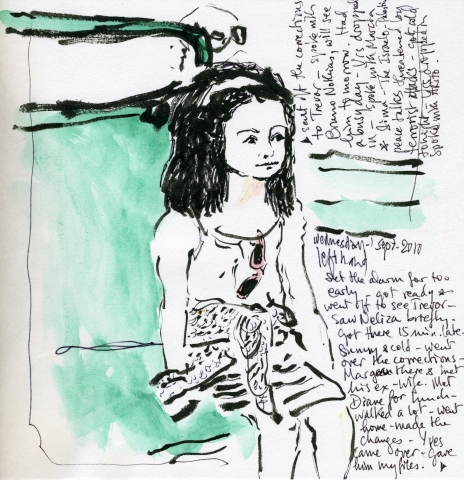 Wednesday - 1 Sept - 2010
left hand
Set the alarm for too
early - got ready &
went off to see Trevor -
saw Neliza briefly.
Got there 15 min. late.
Sunny & cold - went
over the corrections -
there & met
his ex-wife. Met
Diane for lunch -
walked a lot - went
home - made the
changes - Yves
came over - Gave
him my files.
sent off the corrections
to Trevor - spoke with
Bruno will see
him tomorrow. Had
a busy day - Yves dropped
in - Spoke with
& Sima - The Israelo-
peace talks threatened by
terrorist - got cold
tonight -
spoke with